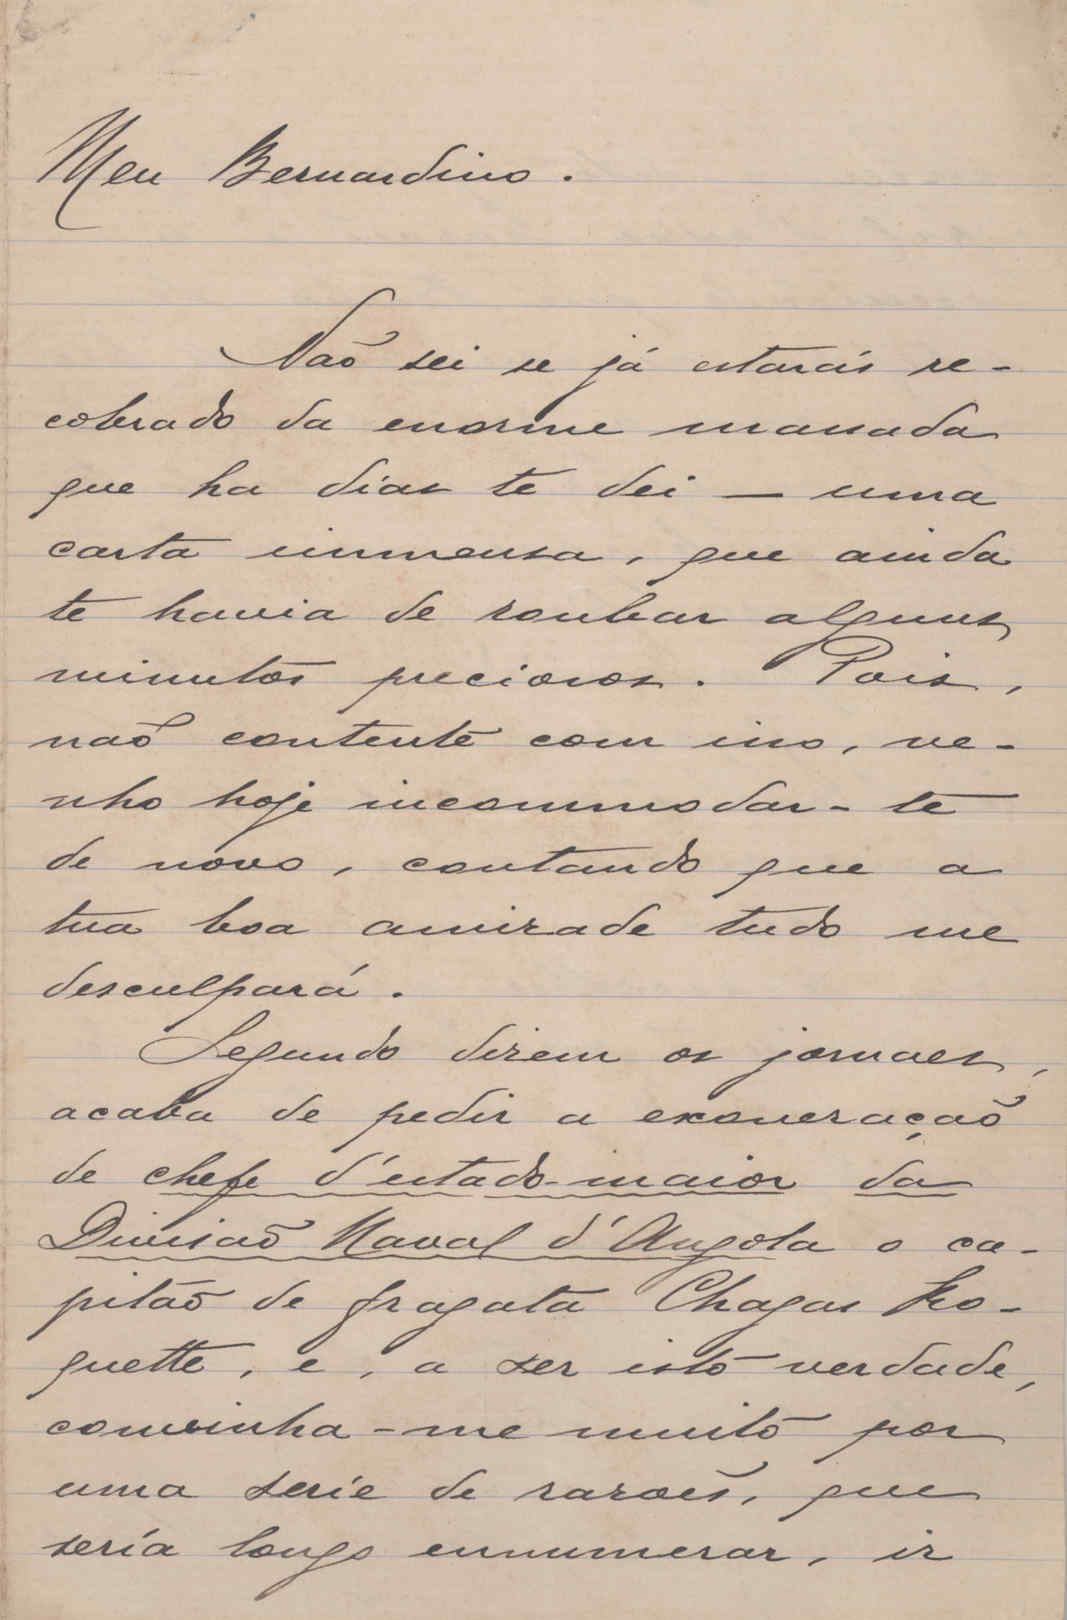 Meu Bernardino.
Não sei se já estarás re-
cobrado da enorme massada
que ha dias te dei — uma
carta immensa, que ainda
te havia de roubar alguns
minutos preciosos. Pois,
não contente com isso, ve-
nho hoje incommodar-te
de novo, contando que a
tua boa amizade tudo me
desculpará.
Segundo dizem os jornaes,
acaba de pedir a exoneração
de chefe d'estado-maior da
Divisão Naval d'Angola o ca-
pitão de fragata Chagas Ro-
quette, e, a ser isto verdade,
convinha-me muito por
uma serie de razões, que
sería longo ennumerar, ir